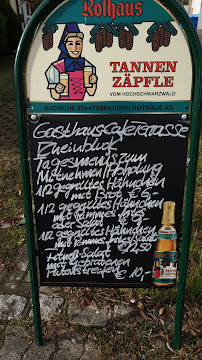 Rothaus
TANNEN
ZÄPFLE
VOM HOCHSCHWARZWALD
BADISCHE STAATSBRAUEREI ROTHAUS AG
Gasthaus Cafe Terrasse
Rheinblick
Tagesmenüs zum
Mitnehmen/Abholung
1/2 gegrilltes Hähnchen
mit Brot €
1/2 gegrilltes Hähnchen
mit Pommes
oder Salat
1/2 gegrilltes Hähnchen
mit Pommes
Salat
mit gebratenen
Putenstreifen € 10,-